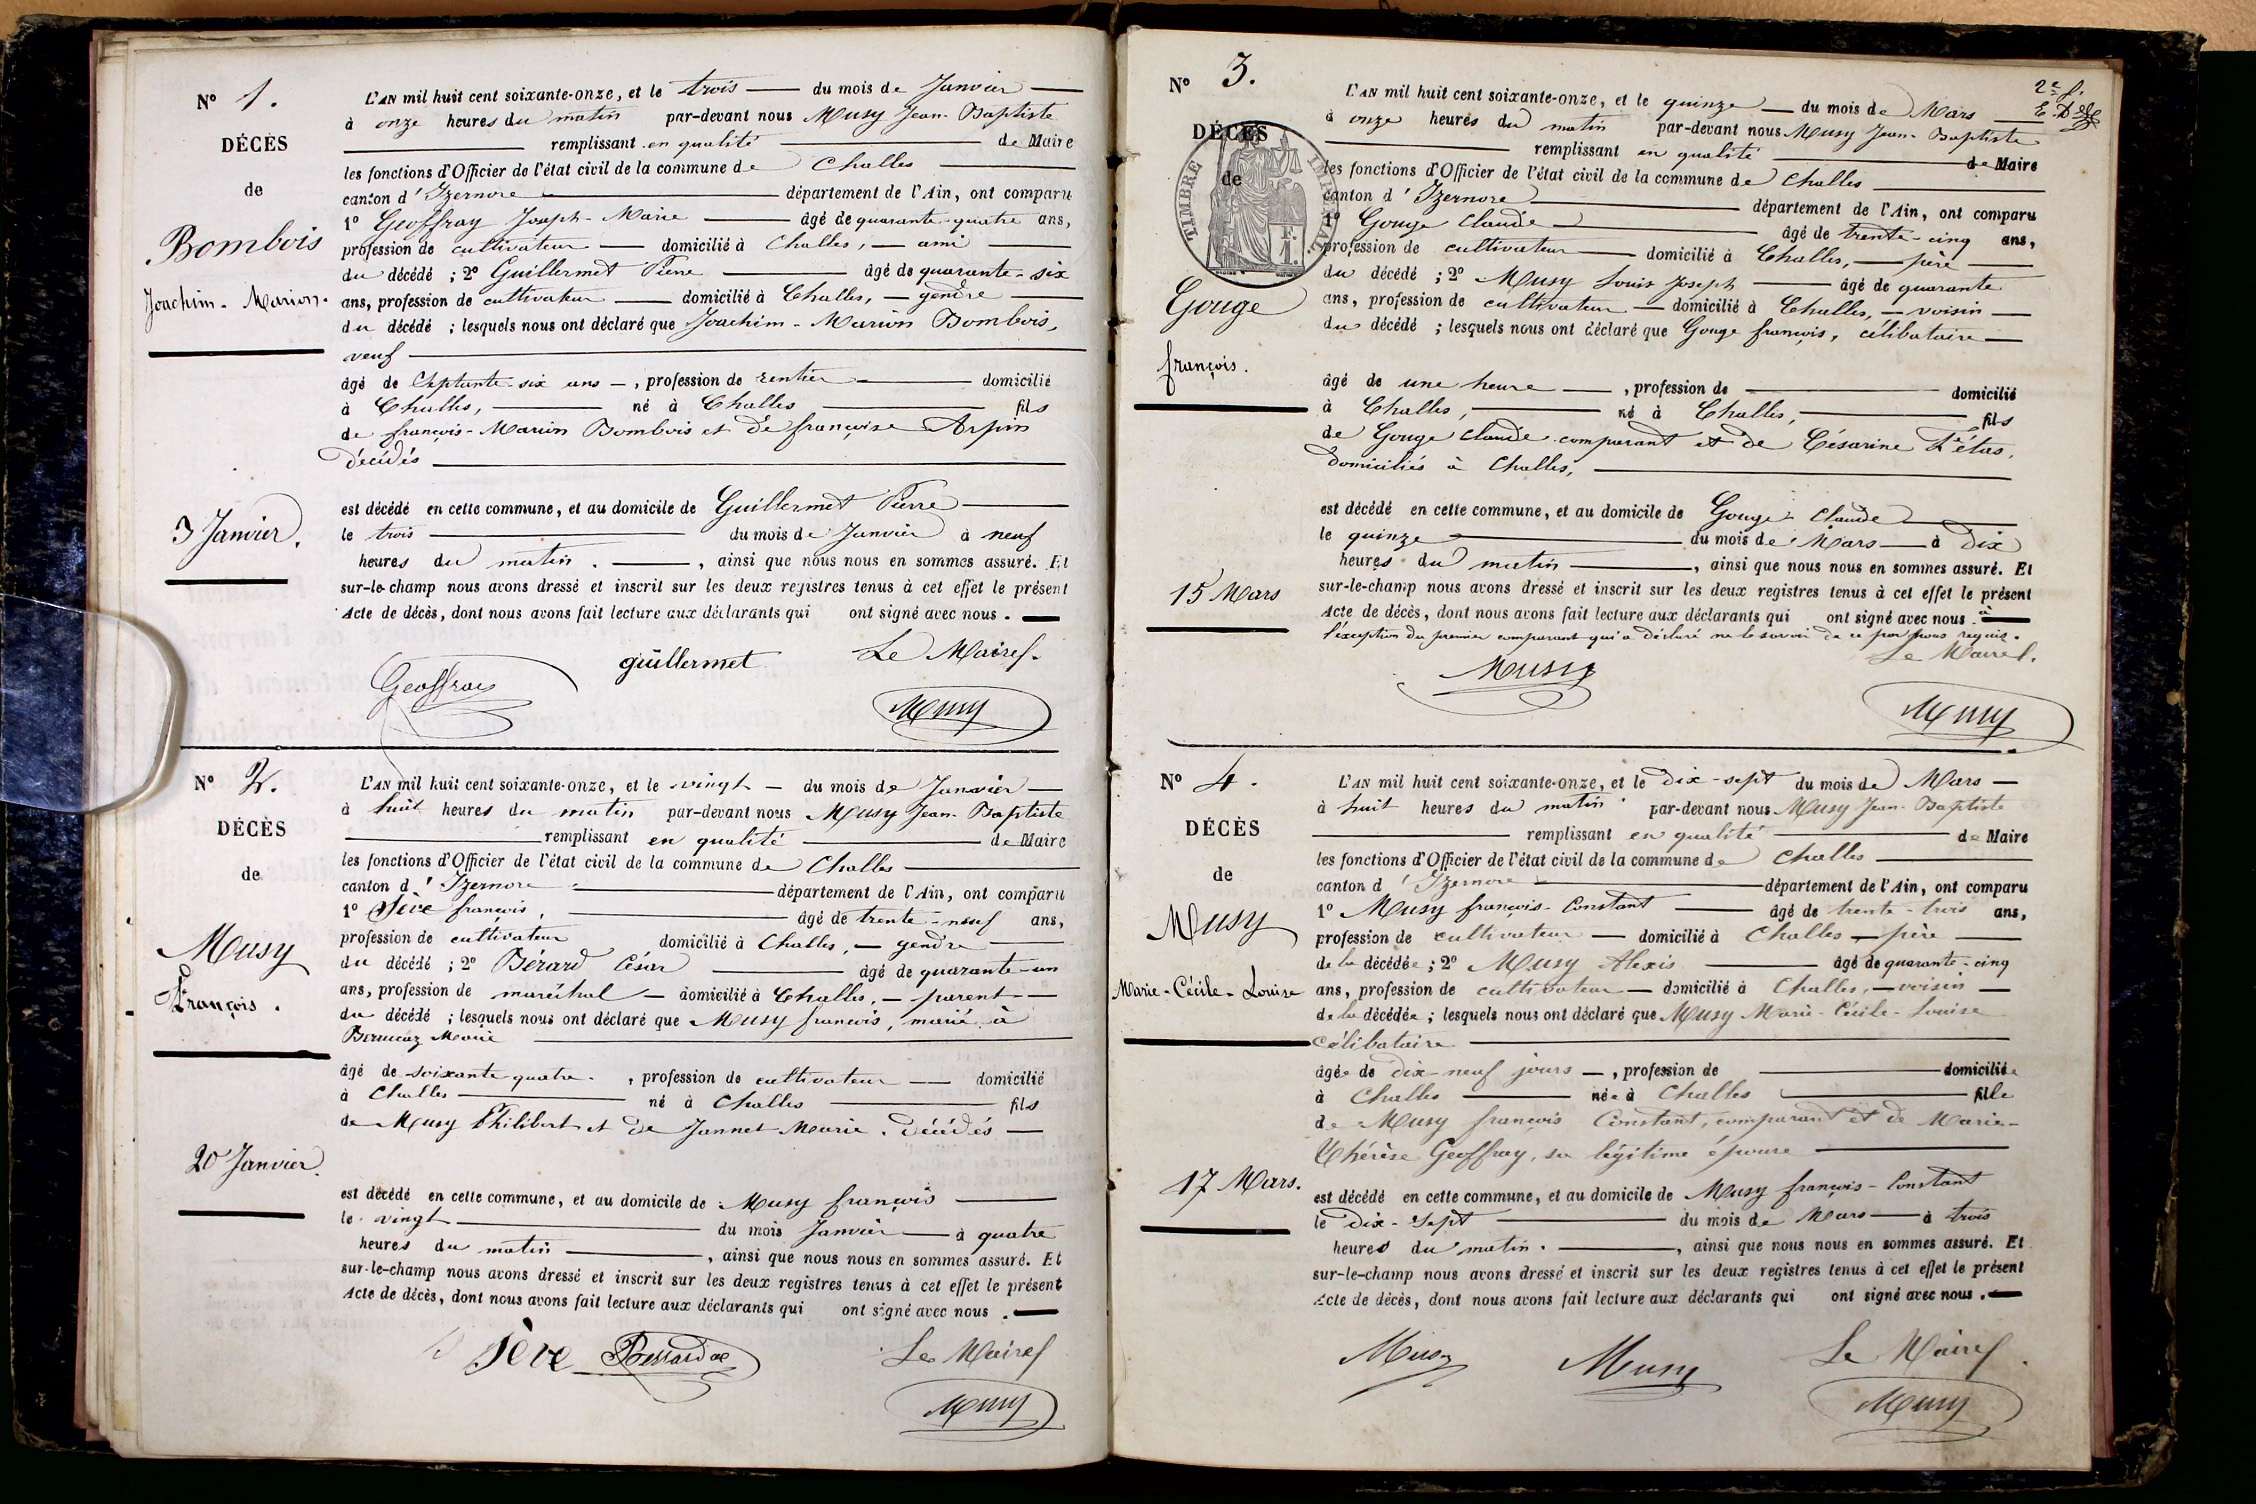 N° 1.
DÉCÈS
de
Bombois
Joachim-Marion.
3 Janvier.
L'AN mil huit cent soixante-onze, et le trois du mois de Janvier
à onze heures du matin par-devant nous Musy Jean-Baptiste
remplissant en qualité de Maire
les fonctions d'Officier de l'état civil de la commune de Challes
canton d'Izernore département de l'Ain, ont comparu
1° Geoffray Joseph-Marie âgé de quarante-quatre ans,
profession de cultivateur domicilié à Challes, ami
du décédé ; 2° Guillermet Pierre âgé de quarante-six
ans, profession de cultivateur domicilié à Challes, gendre
du décédé ; lesquels nous ont déclaré que Joachim-Marion Bombois,
veuf
âgé de septante-six ans, profession de rentier domicilié
à Challes, né à Challes fils
de françois-Marion Bombois et de françoise Arpin
décédés
est décédé en cette commune, et au domicile de Guillermet Pierre
le trois du mois de Janvier à neuf
heures du matin. , ainsi que nous nous en sommes assuré. Et
sur-le-champ nous avons dressé et inscrit sur les deux registres tenus à cet effet le présent
Acte de décès, dont nous avons fait lecture aux déclarants qui ont signé avec nous.
Geoffray guillermet Le Maire
Musy
N° 2.
DÉCÈS
de
Musy
François.
20 Janvier.
L'AN mil huit cent soixante-onze, et le vingt du mois de Janvier
à huit heures du matin par-devant nous Musy Jean-Baptiste
remplissant en qualité de Maire
les fonctions d'Officier de l'état civil de la commune de Challes
canton d'Izernore département de l'Ain, ont comparu
1° Sève françois, âgé de trente-neuf ans,
profession de cultivateur domicilié à Challes, gendre
du décédé ; 2° Bérard César âgé de quarante-un
ans, profession de maréchal domicilié à Challes, parent
du décédé ; lesquels nous ont déclaré que Musy françois, marié à
Marie
âgé de soixante quatre. , profession de cultivateur domicilié
à Challes né à Challes fils
de Musy Philibert et de Jannet Marie. Décédés
est décédé en cette commune, et au domicile de Musy françois
le vingt du mois Janvier à quatre
heures du matin , ainsi que nous nous en sommes assuré. Et
sur-le-champ nous avons dressé et inscrit sur les deux registres tenus à cet effet le présent
Acte de décès, dont nous avons fait lecture aux déclarants qui ont signé avec nous.
Sève Le Maire
Musy
N° 3.
DÉCÈS
de
TIMBRE IMPÉRIAL
Gouge
françois.
15 Mars
L'AN mil huit cent soixante-onze, et le quinze du mois de Mars
à onze heures du matin par-devant nous Musy Jean-Baptiste
remplissant en qualité de Maire
les fonctions d'Officier de l'état civil de la commune de Challes
canton d'Izernore département de l'Ain, ont comparu
1° Gouge Claude âgé de trente-cinq ans,
profession de cultivateur domicilié à Challes, père
du décédé ; 2° Musy Louis Joseph âgé de quarante
ans, profession de cultivateur domicilié à Challes, voisin
du décédé ; lesquels nous ont déclaré que Gouge françois, célibataire
âgé de une heure , profession de domicilié
à Challes, né à Challes, fils
de Gouge Claude comparant et de Césarine
domiciliés à Challes,
est décédé en cette commune, et au domicile de Gouge Claude
le quinze du mois de Mars à dix
heures du matin , ainsi que nous nous en sommes assuré. Et
sur-le-champ nous avons dressé et inscrit sur les deux registres tenus à cet effet le présent
Acte de décès, dont nous avons fait lecture aux déclarants qui ont signé avec nous. à
l'exception du premier comparant qui a déclaré ne le savoir de ce par nous requis.
Musy Le Maire
Musy
N° 4.
DÉCÈS
de
Musy
Marie-Cécile-Louise
17 Mars.
L'AN mil huit cent soixante-onze, et le dix-sept du mois de Mars
à huit heures du matin par-devant nous Musy Jean-Baptiste
remplissant en qualité de Maire
les fonctions d'Officier de l'état civil de la commune de Challes
canton d'Izernore département de l'Ain, ont comparu
1° Musy françois-Constant âgé de trente-trois ans,
profession de cultivateur domicilié à Challes père
de la décédée ; 2° Musy Alexis âgé de quarante-cinq
ans, profession de cultivateur domicilié à Challes, voisin
de la décédée ; lesquels nous ont déclaré que Musy Marie-Cécile-Louise
célibataire
âgée de dix-neuf jours , profession de domiciliée
à Challes née à Challes fille
de Musy françois Constant, comparant et de Marie-
Thérèse Geoffray, sa légitime épouse
est décédé en cette commune, et au domicile de Musy françois-Constant
le dix-sept du mois de Mars à trois
heures du matin. , ainsi que nous nous en sommes assuré. Et
sur-le-champ nous avons dressé et inscrit sur les deux registres tenus à cet effet le présent
Acte de décès, dont nous avons fait lecture aux déclarants qui ont signé avec nous.
Musy Musy Le Maire
Musy